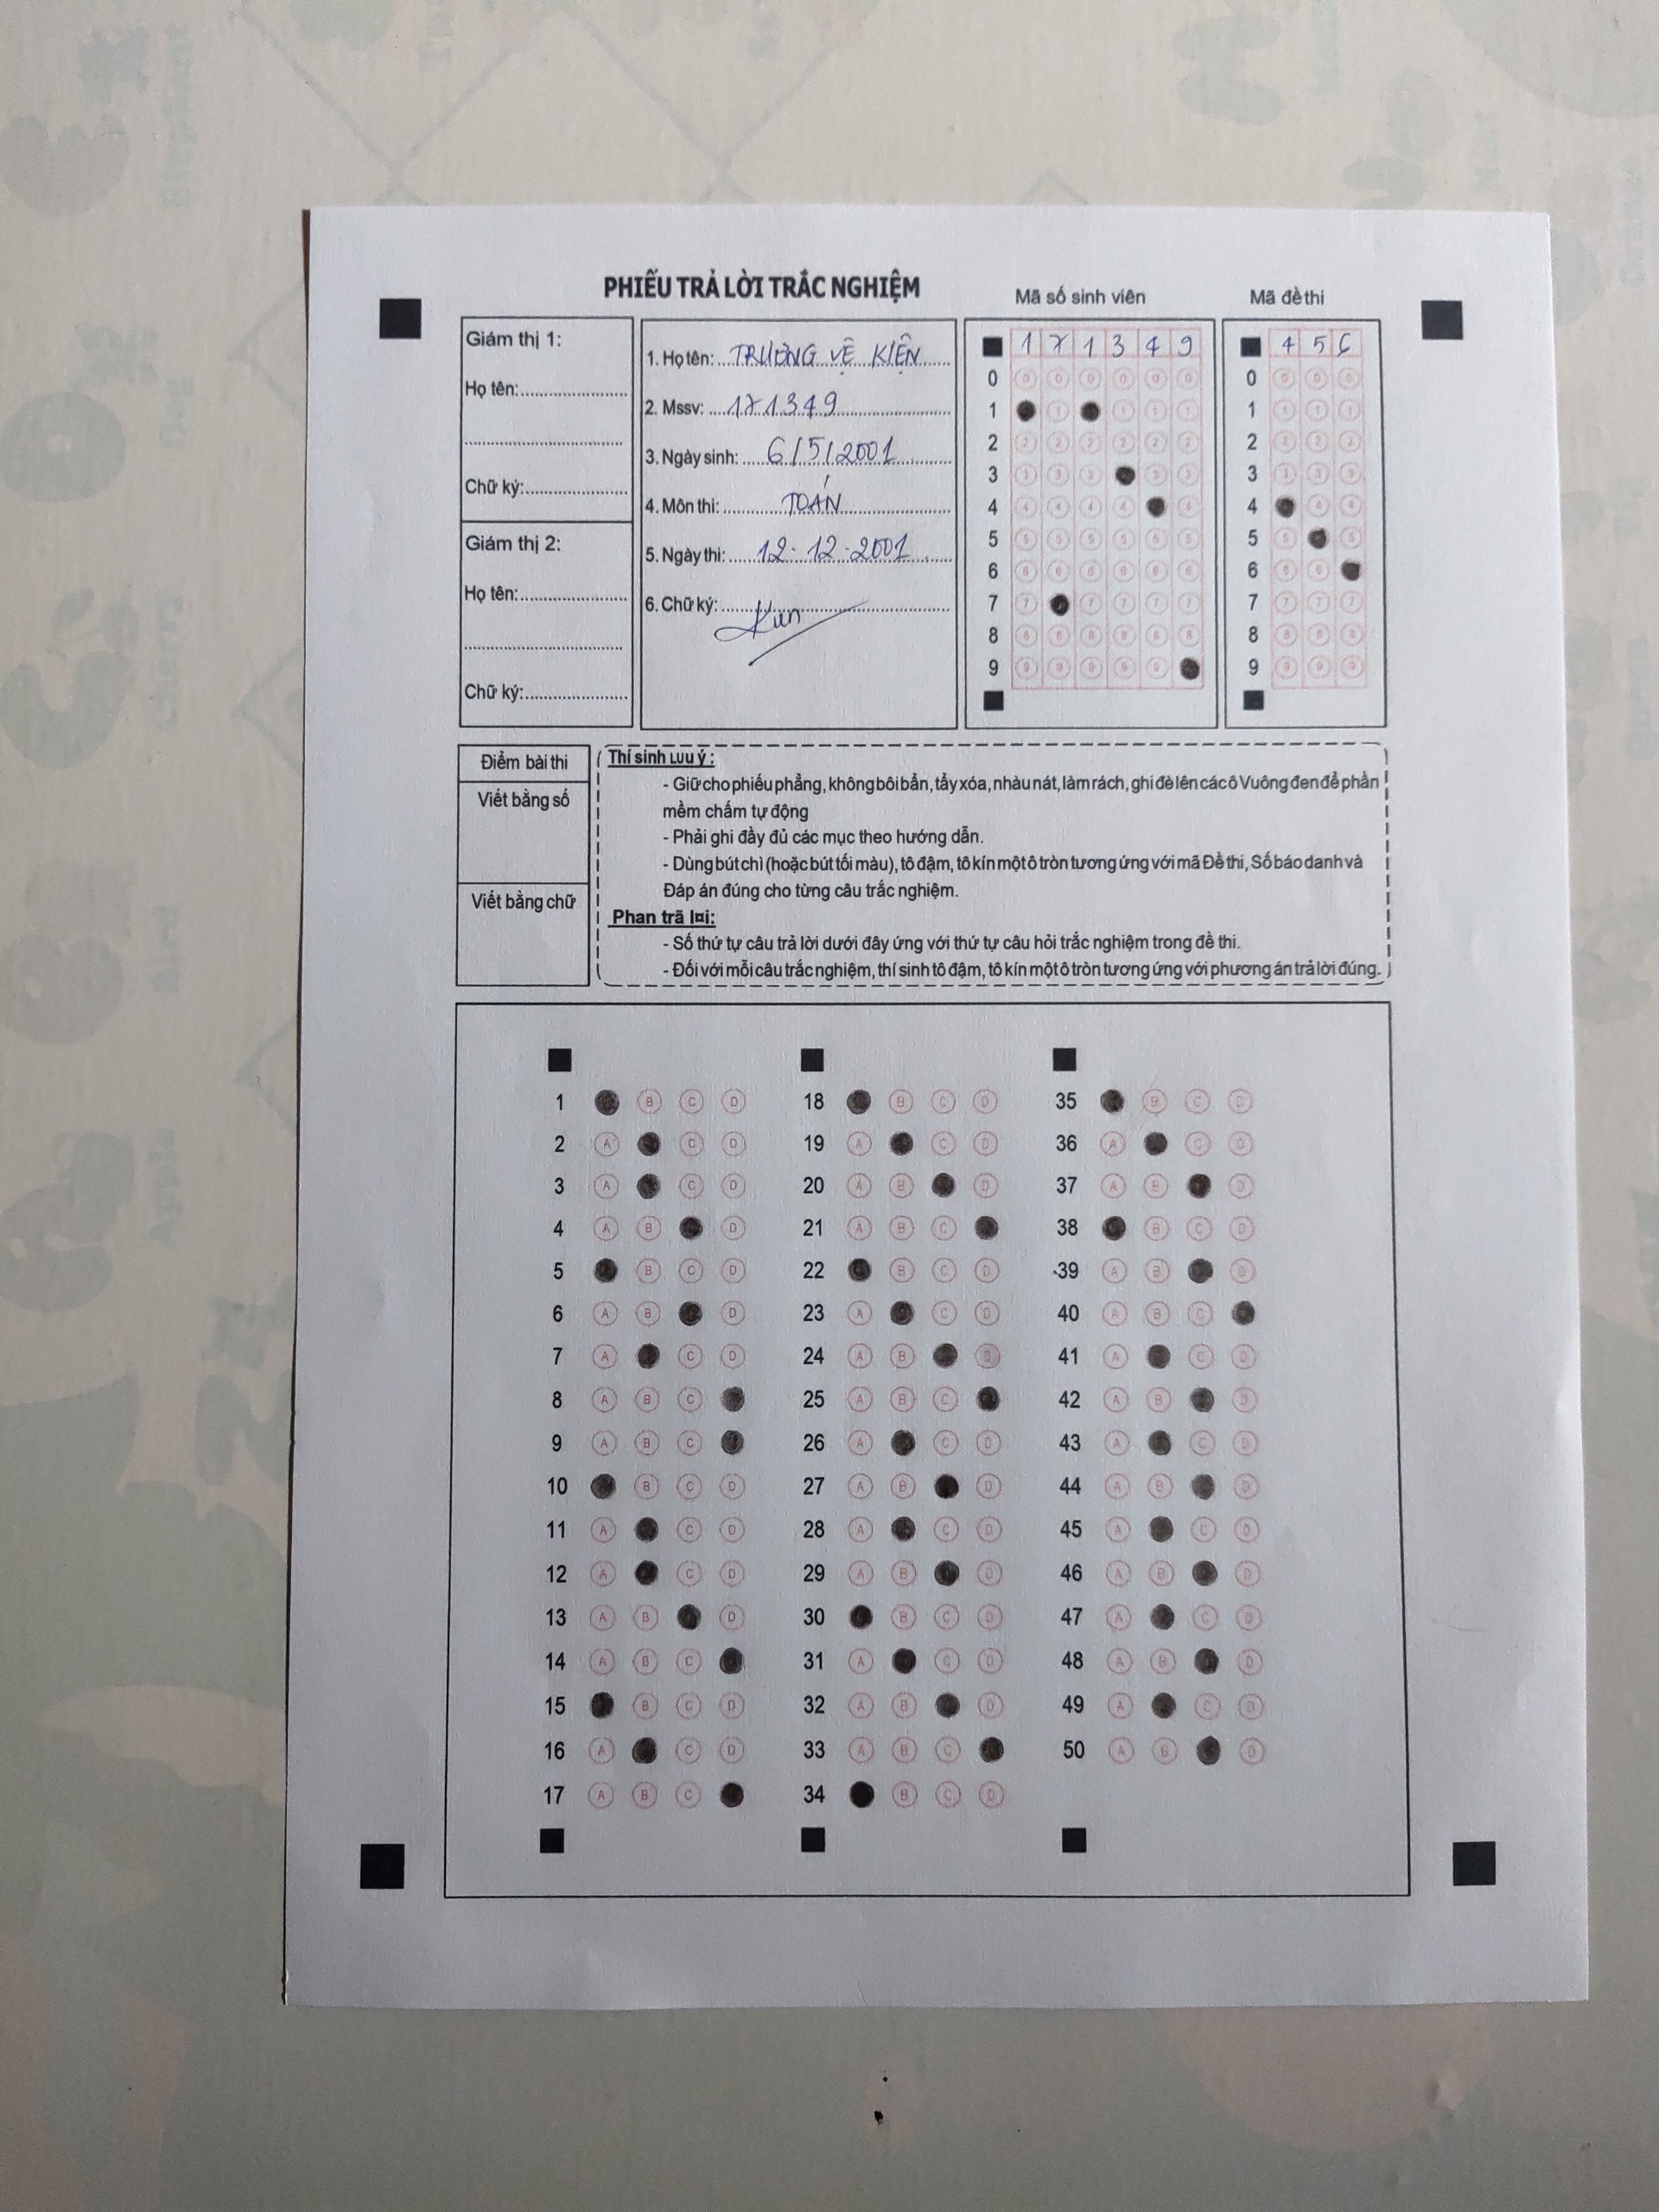 PHIẾU TRẢ LỜI TRẮC NGHIỆM
Mã số sinh viên
Mã đề thi
Giám thị 1:
Họ tên:
Chữ ký:
Giám thị 2:
Họ tên:
Chữ ký:
1. Họ tên: TRƯƠNG VỆ KIỆN
2. Mssv: 171349
3. Ngày sinh: 6/5/2001
4. Môn thi: TOÁN
5. Ngày thi: 12-12-2001
6. Chữ ký:
1 7 1 3 4 9
0 0 0 0 0 0 0
1 1 1 1 1
2 2 2 2 2 2 2
3 3 3 3 3 3
4 4 4 4 4 4
5 5 5 5 5 5 5
6 6 6 6 6 6 6
7 7 7 7 7 7
8 8 8 8 8 8 8
9 9 9 9 9 9
4 5 6
0 0 0 0
1 1 1 1
2 2 2 2
3 3 3 3
4 4 4
5 5 5
6 6 6
7 7 7 7
8 8 8 8
9 9 9 9
Điểm bài thi
Viết bằng số
Viết bằng chữ
Thí sinh Lưu ý :
- Giữ cho phiếu phẳng, không bôi bẩn, tẩy xóa, nhàu nát, làm rách, ghi đè lên các ô Vuông đen để phần
mềm chấm tự động
- Phải ghi đầy đủ các mục theo hướng dẫn.
- Dùng bút chì (hoặc bút tối màu), tô đậm, tô kín một ô tròn tương ứng với mã Đề thi, Số báo danh và
Đáp án đúng cho từng câu trắc nghiệm.
Phan trã l¤i:
- Số thứ tự câu trả lời dưới đây ứng với thứ tự câu hỏi trắc nghiệm trong đề thi.
- Đối với mỗi câu trắc nghiệm, thí sinh tô đậm, tô kín một ô tròn tương ứng với phương án trả lời đúng.
1 B C D
2 A C D
3 A C D
4 A B D
5 B C D
6 A B D
7 A C D
8 A B C
9 A B C
10 B C D
11 A C D
12 A C D
13 A B D
14 A B C
15 B C D
16 A C D
17 A B C
18 B C D
19 A C D
20 A B D
21 A B C
22 B C D
23 A C D
24 A B D
25 A B C
26 A C D
27 A B D
28 A C D
29 A B D
30 B C D
31 A C D
32 A B D
33 A B C
34 B C D
35 B C D
36 A C D
37 A B D
38 B C D
39 A B D
40 A B C
41 A C D
42 A B D
43 A C D
44 A B D
45 A C D
46 A B D
47 A C D
48 A B D
49 A C D
50 A B D